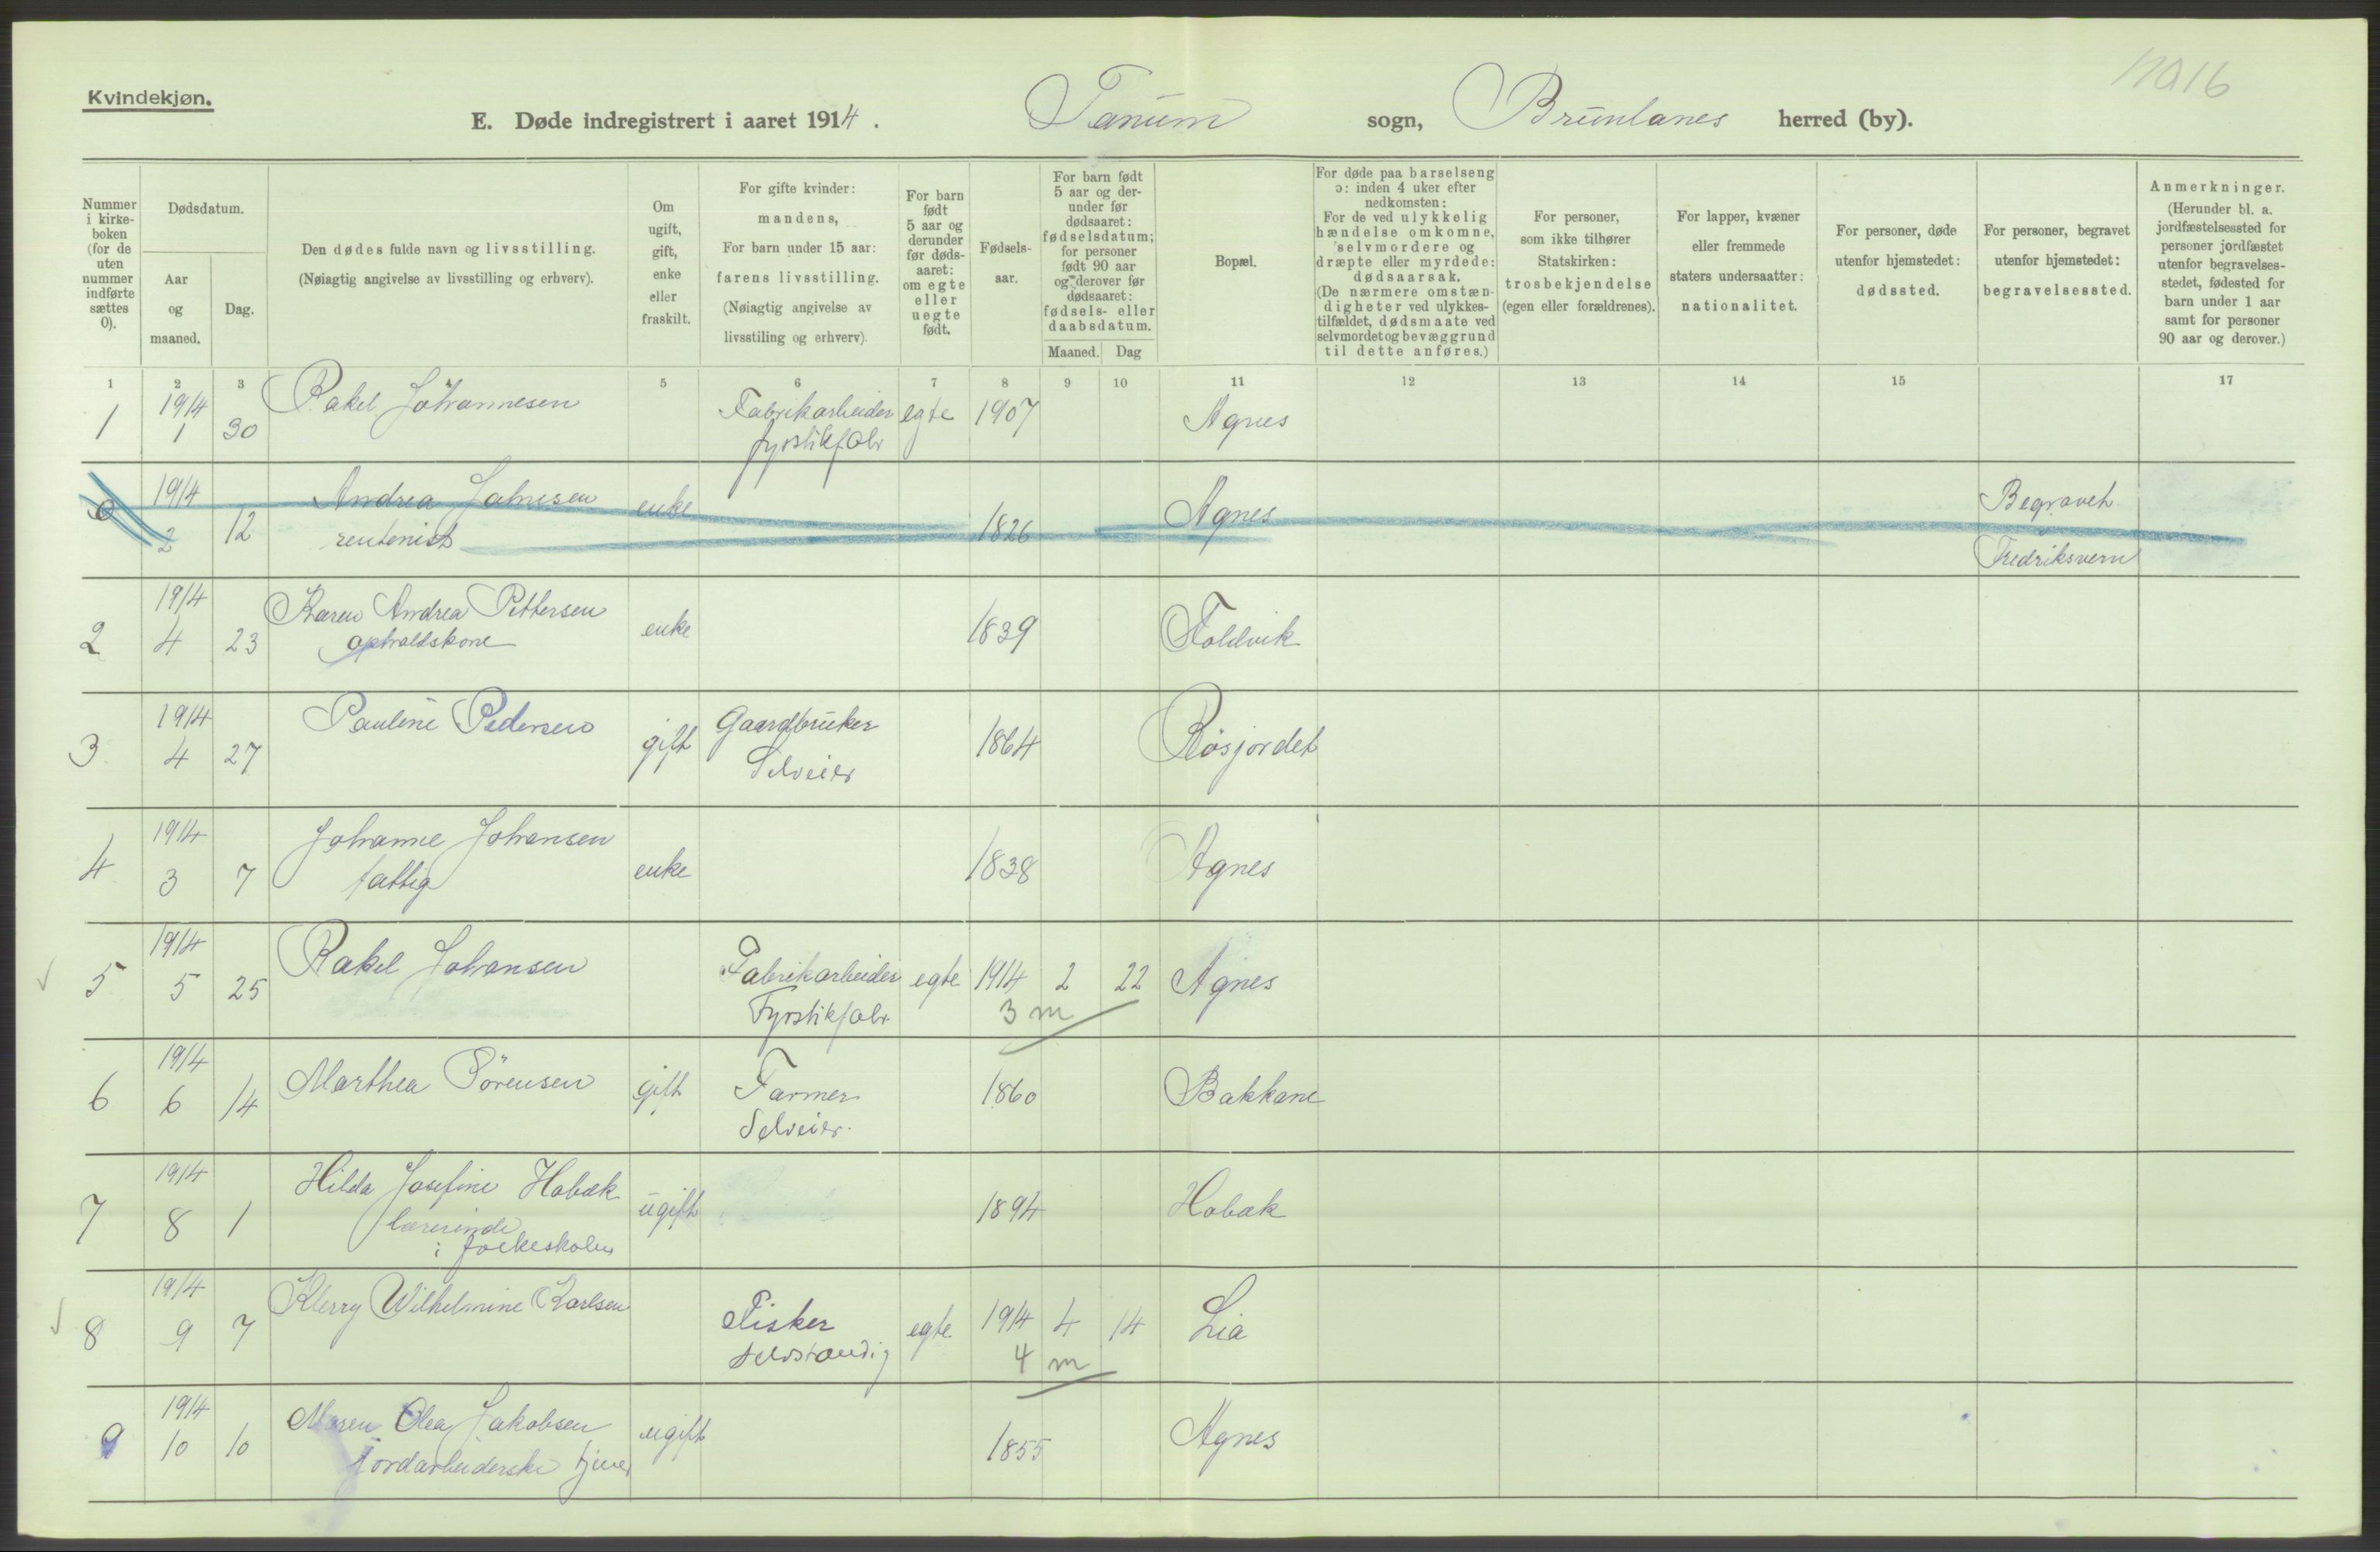 Kvindekjøn.
1916
E. Døde indregistrert i aaret 1914. Tanum sogn, Brunlanes herred (by).
Nummer i kirke-boken (for de uten nummer indførte sættes 0).
Dødsdatum.
Aar og maaned.
Dag.
Den dødes fulde navn og livsstilling.
(Nøiagtig angivelse av livsstilling og erhverv).
Om ugift, gift, enke eller fraskilt.
For gifte kvinder: mandens,
For barn under 15 aar: farens livsstilling.
(Nøiagtig angivelse av livsstiling og erhverv).
For barn født 5 aar og derunder før døds-aaret: om egte eller uegte født.
Fødsels-aar.
For barn født 5 aar og der-under før dødsaaret: fødselsdatum; for personer født 90 aar og derover før dødsaaret: fødsels- eller daabsdatum.
Maaned. Dag
Bopæl.
For døde paa barselseng ɔ: inden 4 uker efter nedkomsten:
For de ved ulykkelig hændelse omkomne, selvmordere og dræpte eller myrdede: dødsaarsak.
(De nærmere omstæn-digheter ved ulykkes-tilfældet, dødsmaate ved selvmordet og bevæggrund til dette anføres.)
For personer, som ikke tilhører Statskirken: trosbekjendelse (egen eller forældrenes).
For lapper, kvæner eller fremmede staters undersaatter: nationalitet.
For personer, døde utenfor hjemstedet: dødssted.
For personer, begravet utenfor hjemstedet: begravelsessted.
Anmerkninger.
(Herunder bl. a. jordfæstelsessted for personer jordfæstet utenfor begravelses-stedet, fødested for barn under 1 aar samt for personer 90 aar og derover.)
1 2 3 4 5 6 7 8 9 10 11 12 13 14 15 17
1 1914 1 30 Rakel Johannesen Fabrikarbeider fyrstikfabr egte 1907 Agnes
0 1914 2 12 Andrea Johnsen rentenist enke 1826 Agnes Begravet Fredriksvern
2 1914 4 23 Karen Andrea Pettersen opholdskone enke 1839 Foldvik
3 1914 4 27 Pauline Pedersen gift Gaardbruker Selveier 1864 Røsjordet
4 1914 3 7 Johanne Johansen fattig enke 1838 Agnes
5 1914 5 25 Rakel Johansen Fabrikarbeider Fyrstikfabr. egte 1914 2 22 Agnes
3 m
6 1914 6 14 Marthea Sörensen gift Farmer Selveier. 1860 Bakkane
7 1914 8 1 Hilda Josefine Hobæk lærerinde i folkeskolen ugift 1894 Hobæk
8 1914 9 7 Klerry Wilhelmine Karlsen Fisker selvstændig egte 1914 4 14 Lia
4 m
9 1914 10 10 Maren Olea Jakobsen jordarbeiderske tjener ugift 1855 Agnes